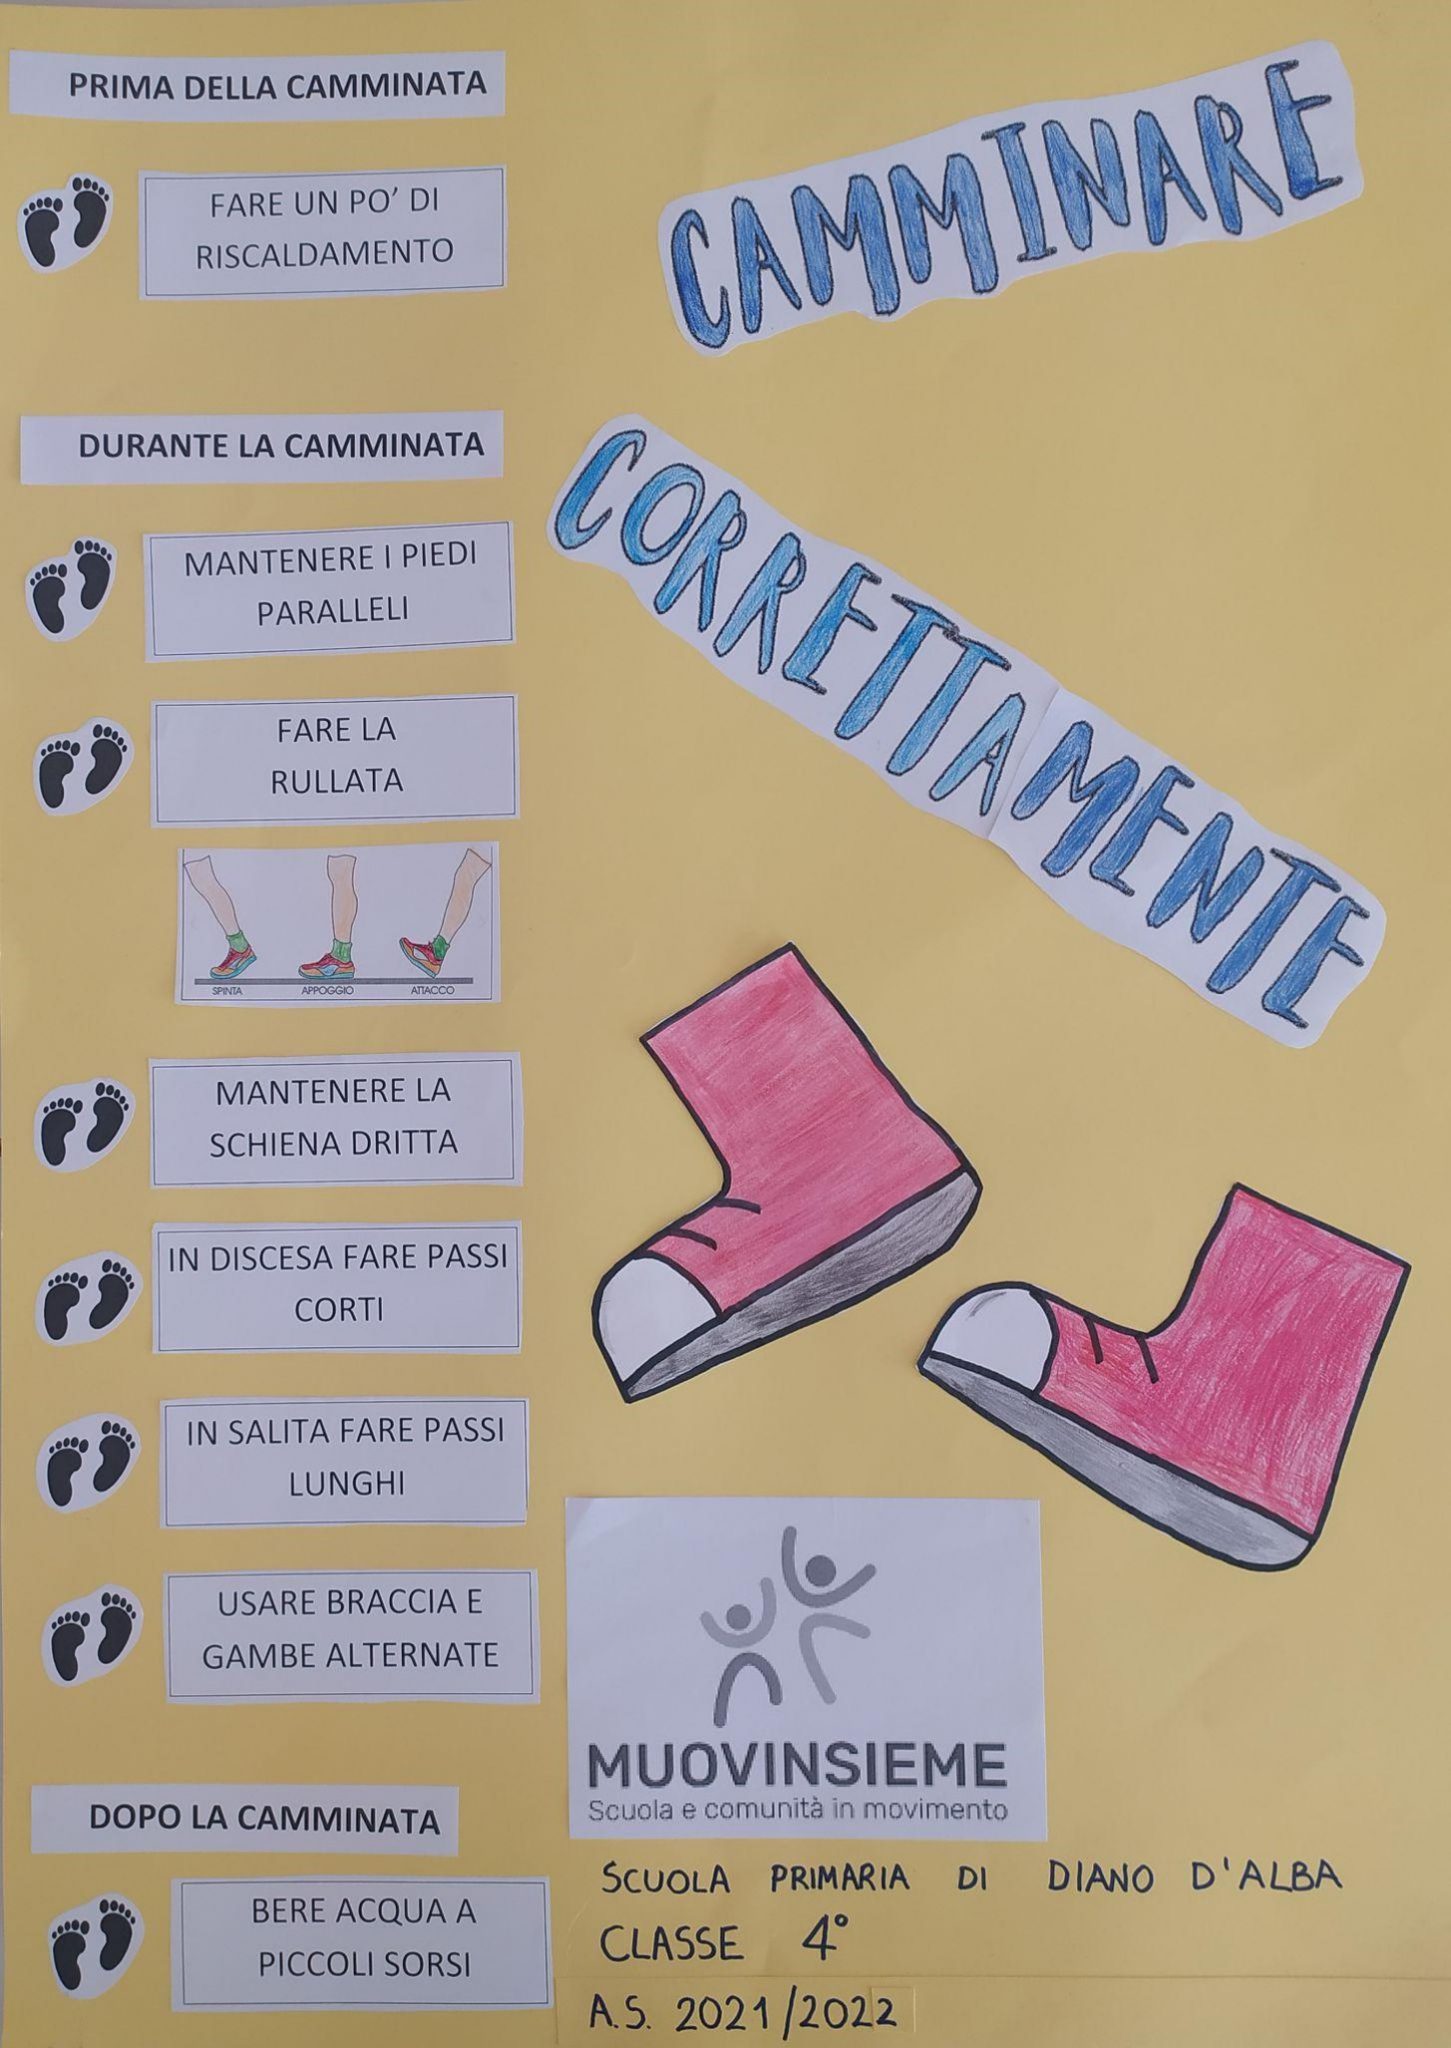 PRIMA DELLA CAMMINATA
FARE UN PO’ DI
RISCALDAMENTO
DURANTE LA CAMMINATA
MANTENERE I PIEDI
PARALLELI
FARE LA
RULLATA
SPINTA APPOGGIO ATTACCO
MANTENERE LA
SCHIENA DRITTA
IN DISCESA FARE PASSI
CORTI
IN SALITA FARE PASSI
LUNGHI
USARE BRACCIA E
GAMBE ALTERNATE
DOPO LA CAMMINATA
BERE ACQUA A
PICCOLI SORSI
CAMMINARE
CORRETTAMENTE
MUOVINSIEME
Scuola e comunità in movimento
SCUOLA PRIMARIA DI DIANO D'ALBA
CLASSE 4°
A.S. 2021/2022